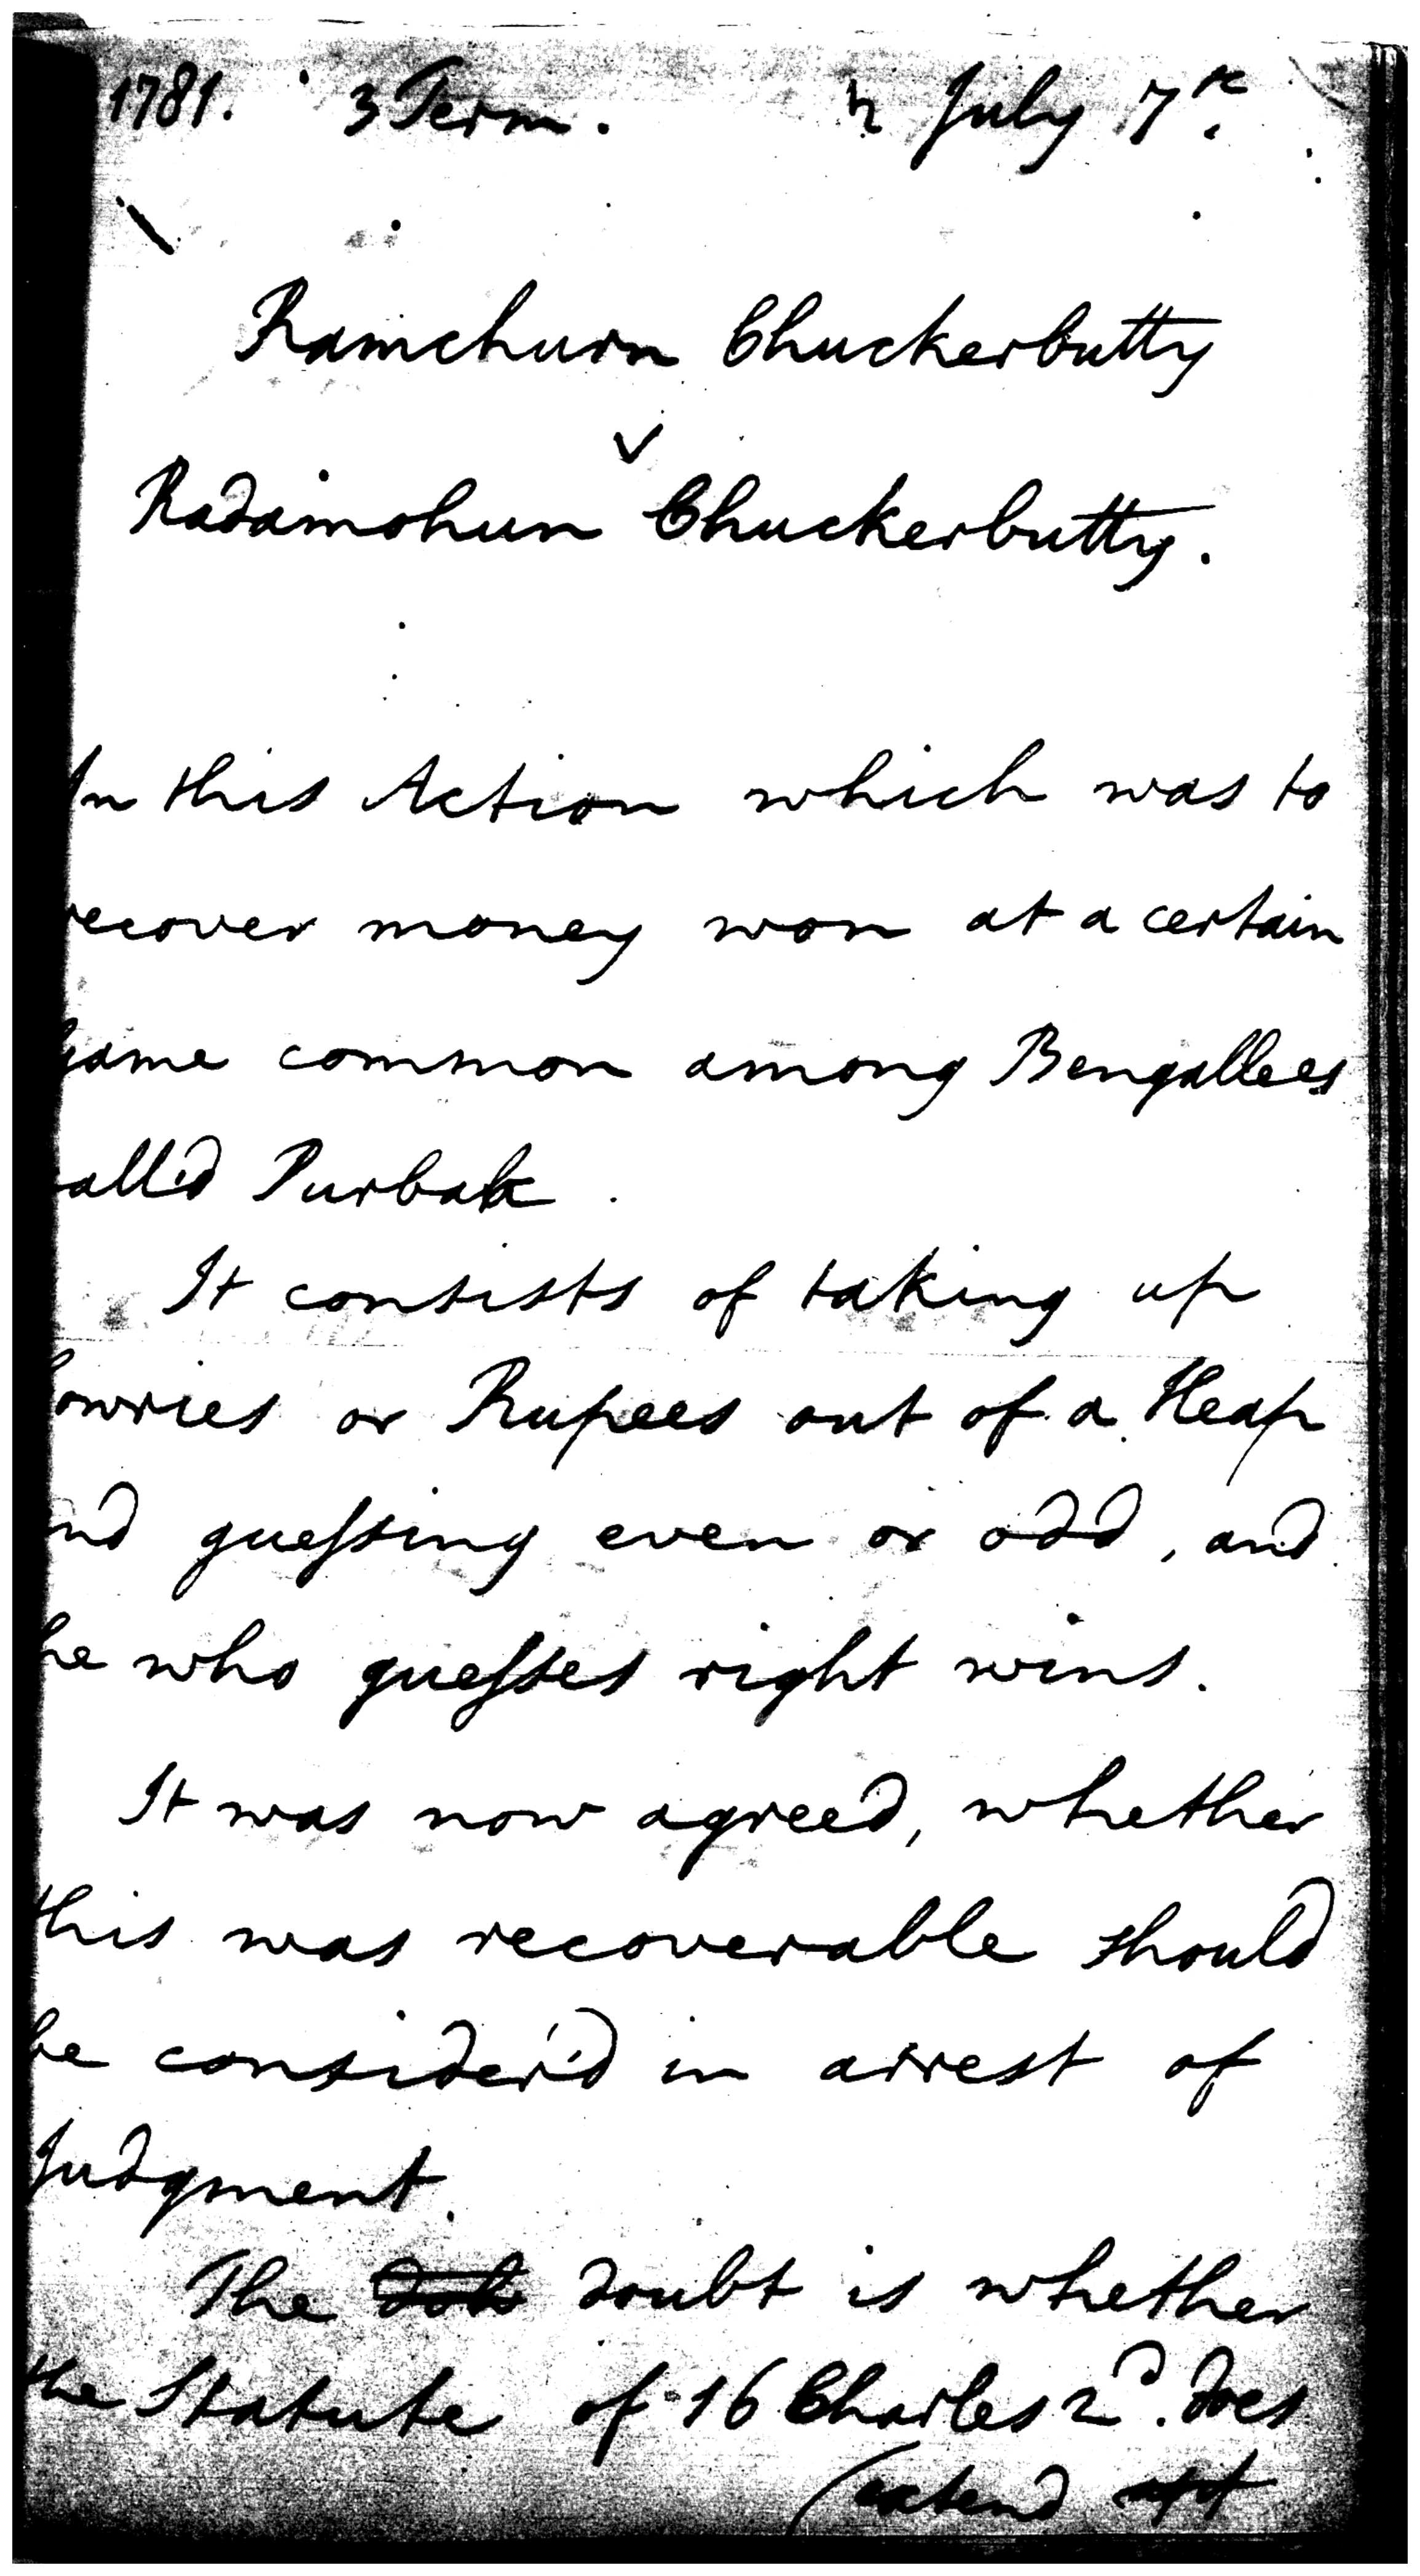 1781. 3 Term. ♄ July 7th.
Ramchurn Chuckerbutty
v
Radamohun Chuckerbutty.
In this Action which was to
recover money won at a certain
Game common among Bengallees
call'd Purbak.
It consists of taking up
Cowries or Rupees out of a Heap
and guessing even or odd, and
he who guesses right wins.
It was now agreed, whether
this was recoverable should
be consider'd in arrest of
Judgment.
The doubt is whether
the Statute of 16 Charles 2d. does
(extend